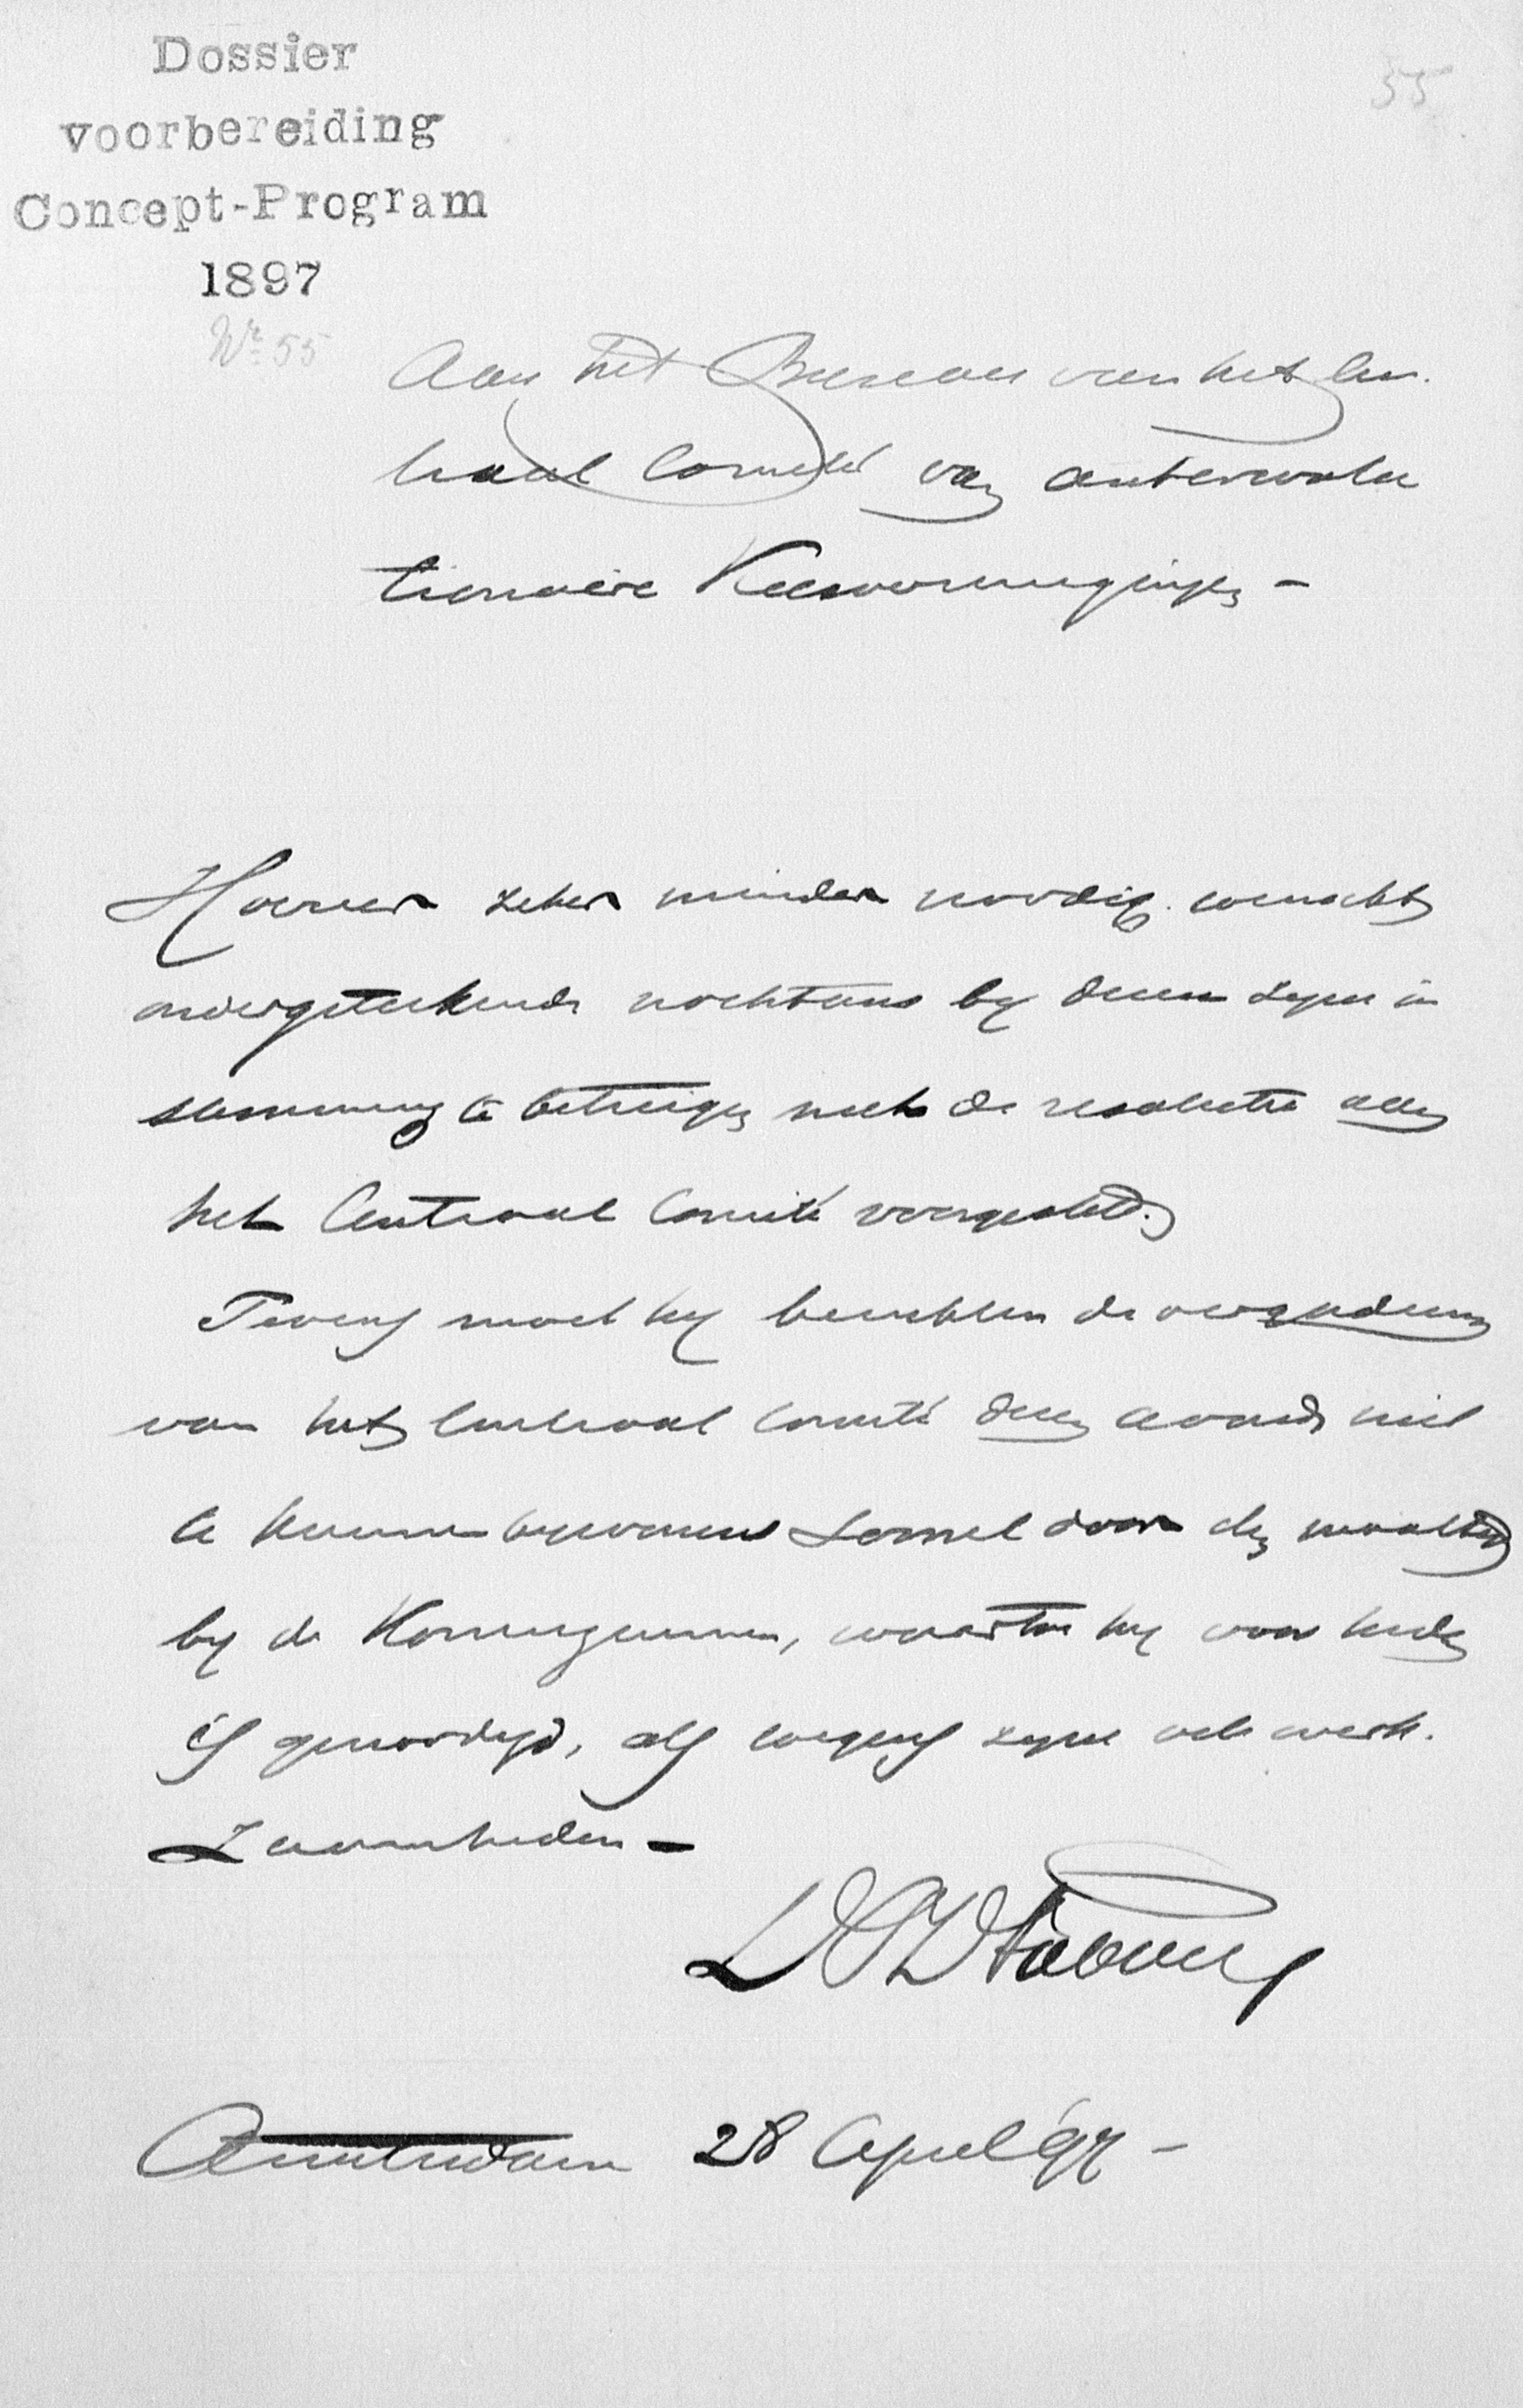 Dossier
voorbereiding
Concept-Program
1897
Nr 55
55
Aan het Bureau van het Cen-
traal Comité van antirevolu
tionaire Kiesvereenigingen –
Hoezeer zeker minder noodig wenscht
ondergeteekende nochtans by dezen zyne in
stemming te betuigen met de resolutie aan
het Centraal Comité voorgesteld.
Tevens moet hy berichten de vergadering
van het Centraal Comité dezen avond niet
te kunnen bywonen zoowel door den maaltyd
by de Koninginnen, waartoe hy voor heden
is genoodigd, als wegens zyne vele werk-
zaamheden –
Amsterdam 28 April 97 –